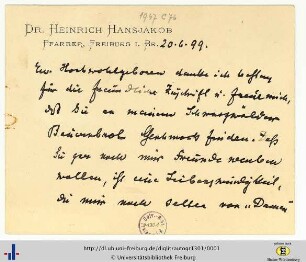 1947 C76
DR. HEINRICH HANSJAKOB
PFARRER, FREIBURG I. BR. 20.6.99.
Ew. Hochwohlgeboren danke ich bestens
für die freundliche Zuschrift u. freue mich,
daß Sie an meinem Schwarzwälder
Geschmack finden. Daß
Sie gar noch mir Freunde werben
wollen, ist eine Liebenswürdigkeit,
die mir noch selten von "Damen"
http://dl.ub.uni-freiburg.de/diglit/autogr1301/0001
© Universitätsbibliothek Freiburg